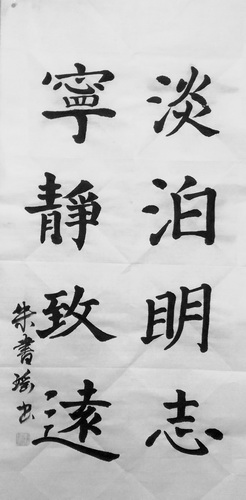 淡泊明志
寧靜致遠
朱書瑤書